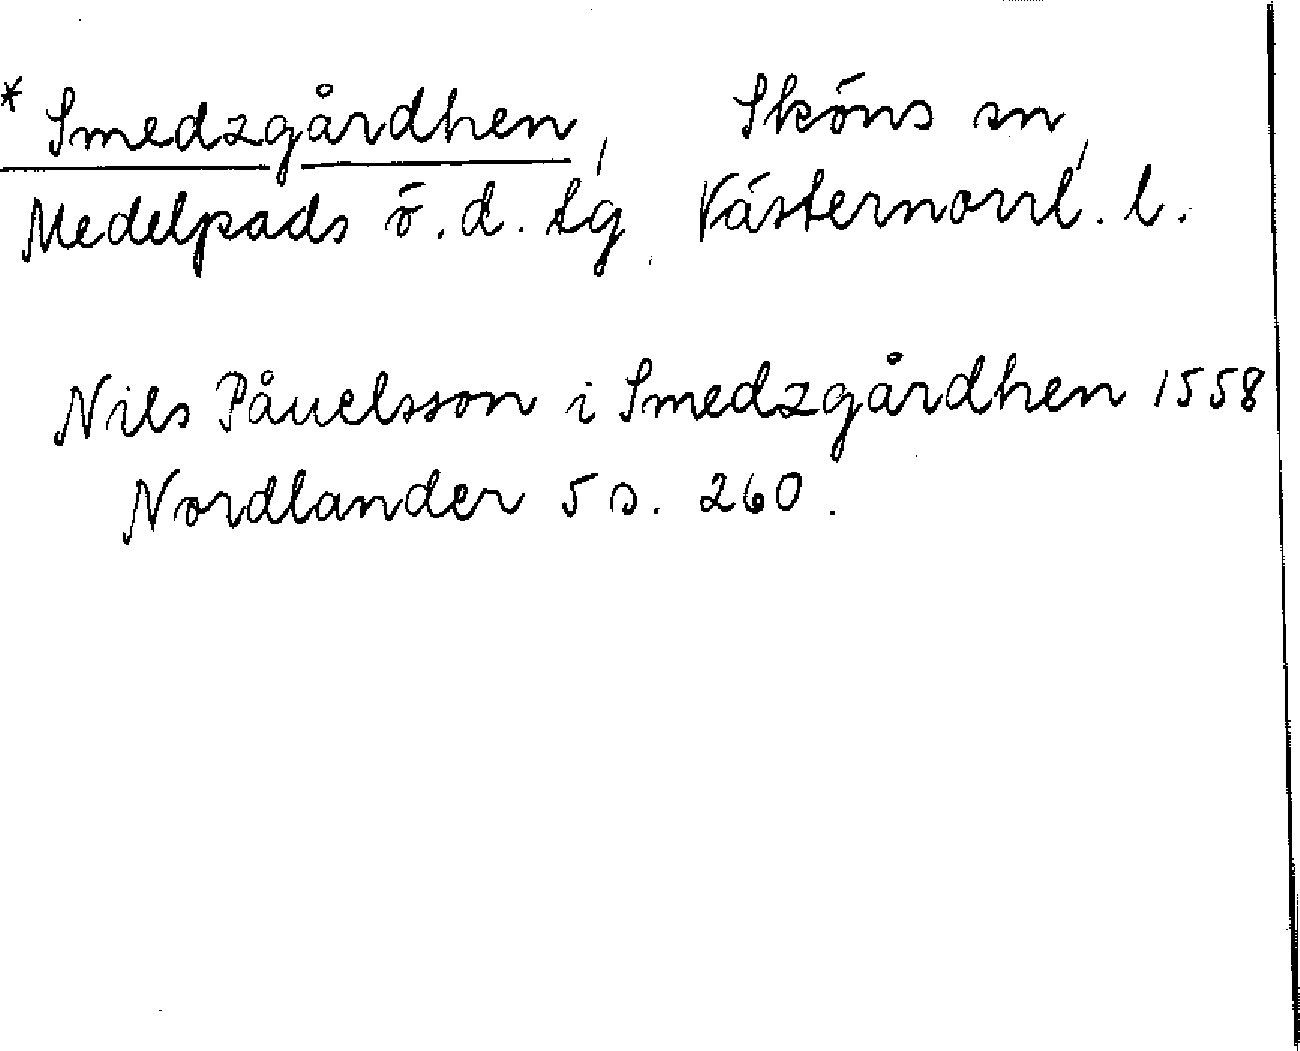 * Smedzgårdhen, Sköns sn,
Medelpads ö. d. tg. Västernorrl. l.
Nils Påuelsson i Smedzgårdhen 1558
Nordlander 5 s. 260.